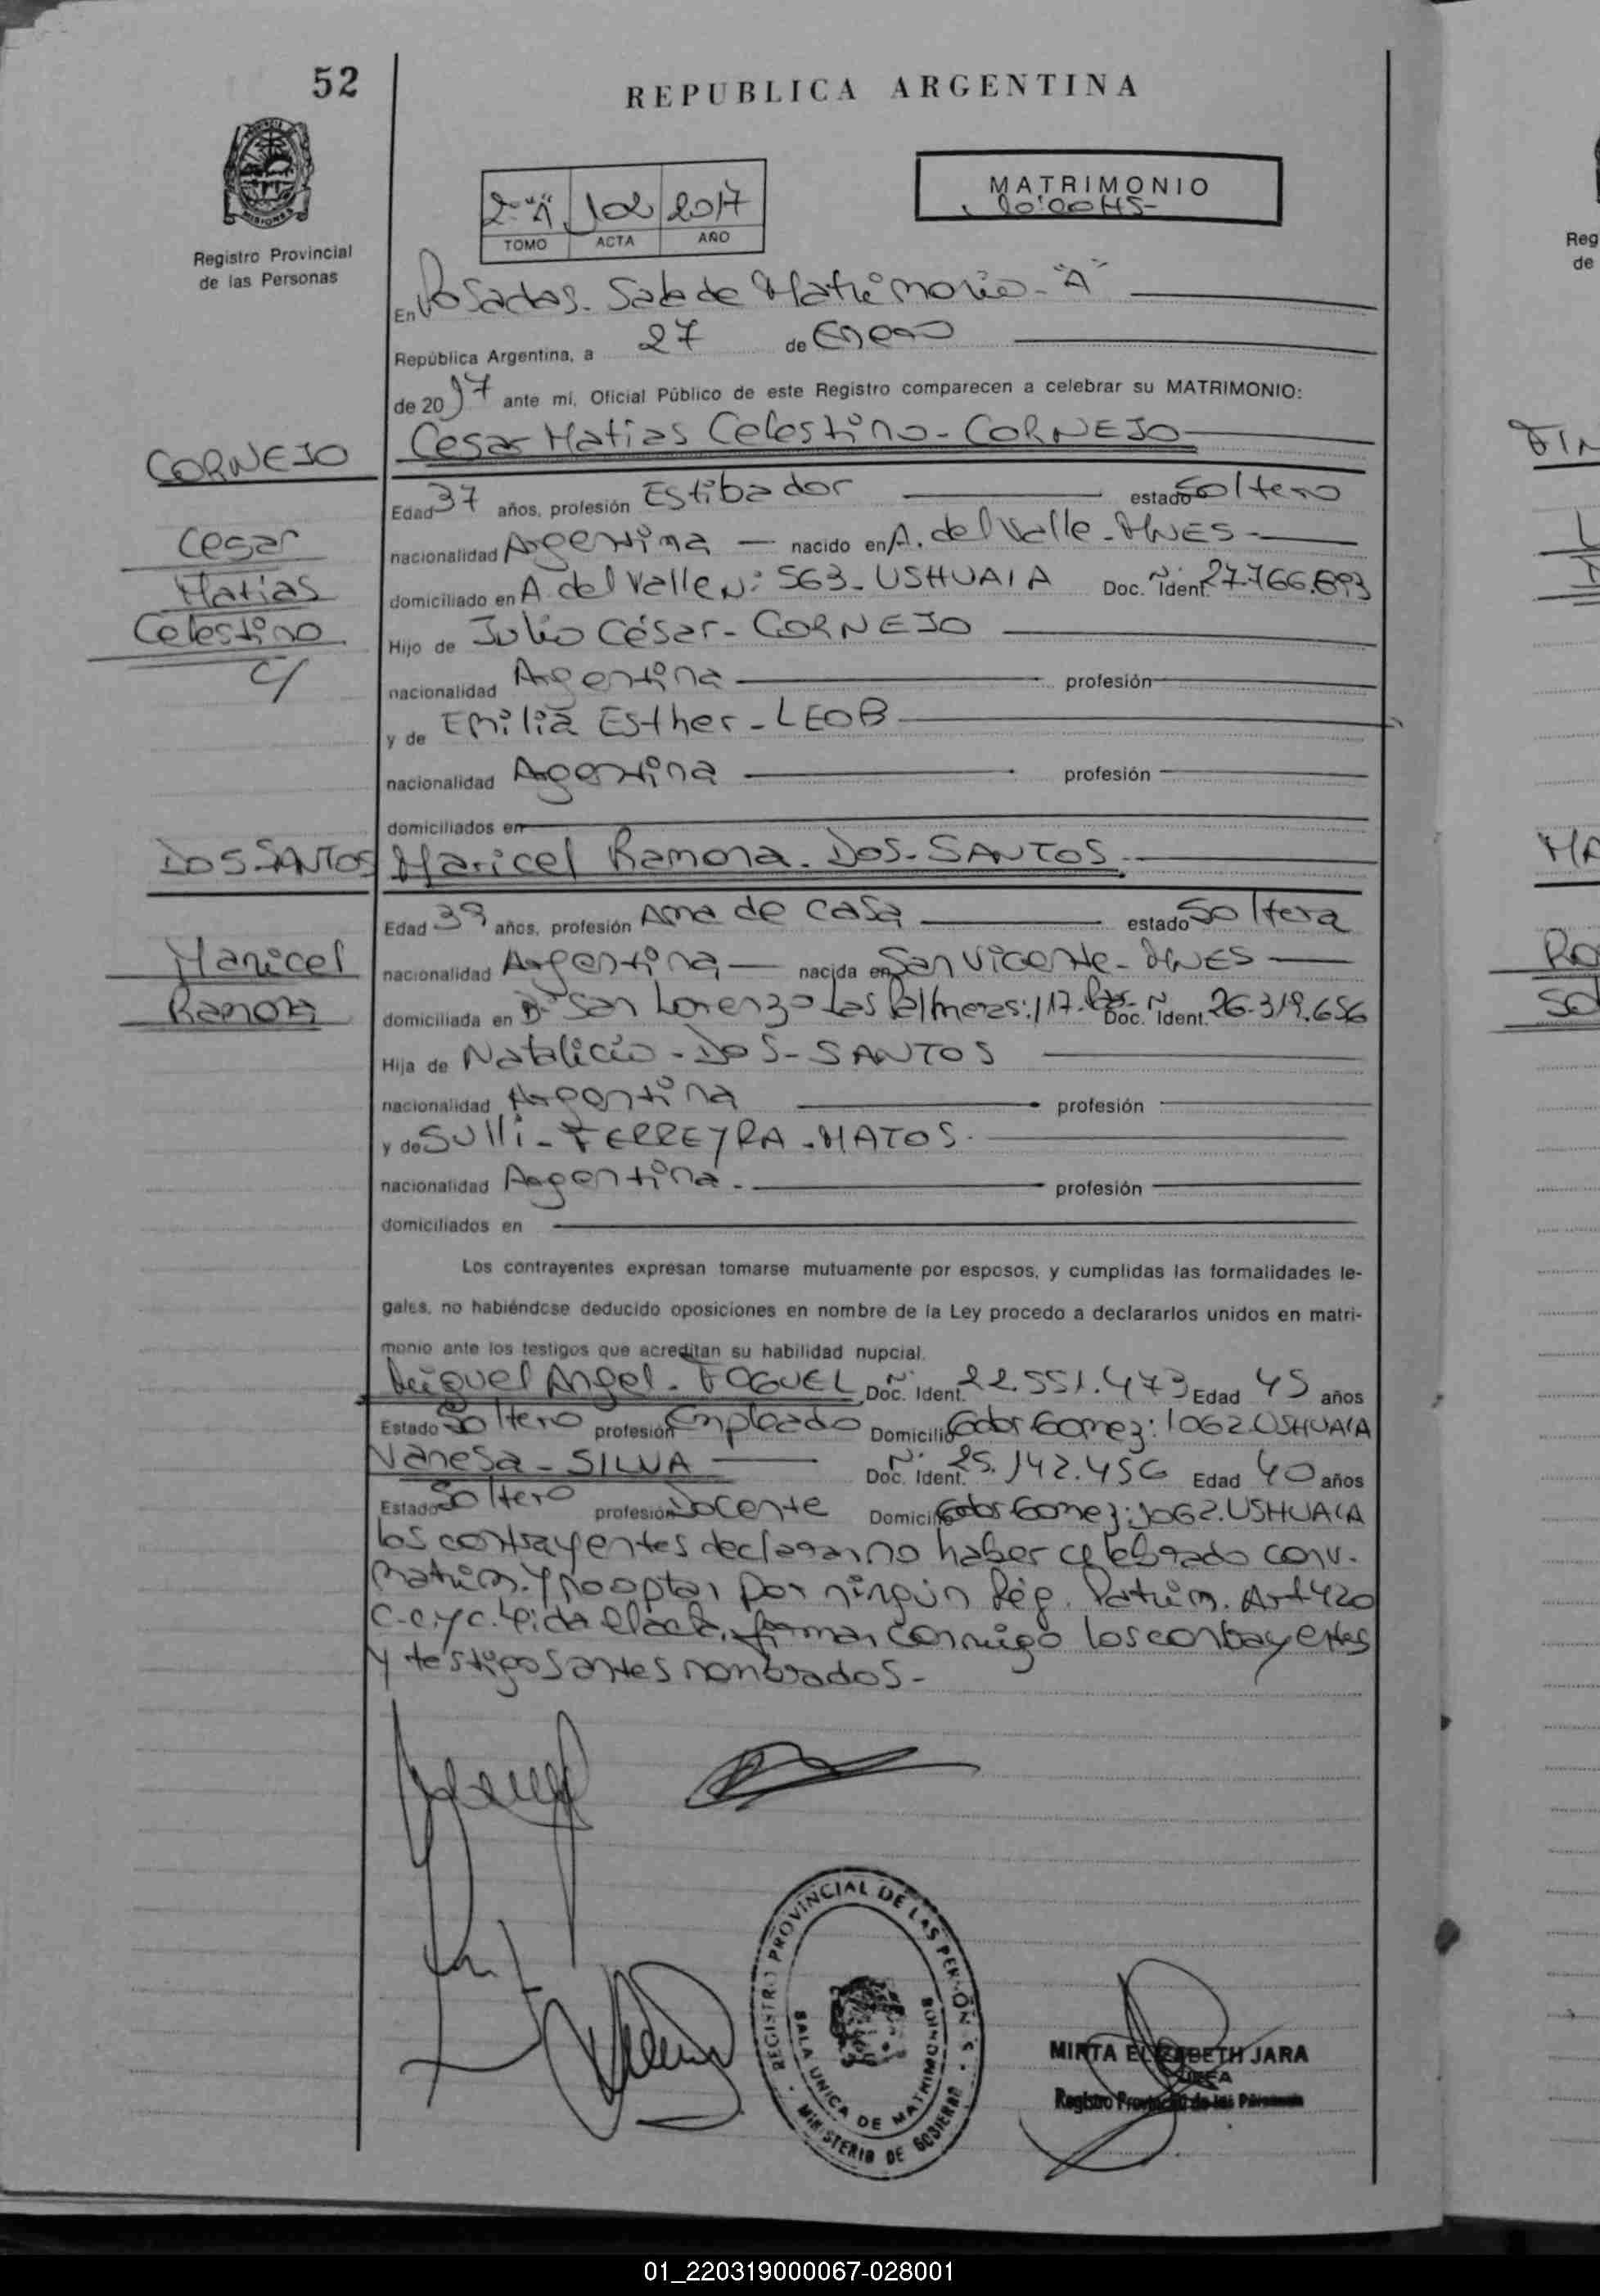 52
REPUBLICA ARGENTINA
MISIONES
Registro Provincial
de las Personas
2-"A" 102 2017
TOMO ACTA AÑO
MATRIMONIO
10:00HS-
En Posadas. Sala de Matrimonio - "A"
República Argentina, a 27 de Enero
de 2017 ante mí, Oficial Público de este Registro comparecen a celebrar su MATRIMONIO:
CORNEJO
Cesar Matias Celestino - CORNEJO
Cesar
Matias
Celestino
C/
Edad 37 años, profesión Estibador estado Soltero
nacionalidad Argentina - nacido en A. del Valle - MNES -
domiciliado en A. del Valle N: 563 - USHUAIA Doc. Ident. Nº 27.766.893
Hijo de Julio César - CORNEJO
nacionalidad Argentina profesión
y de Emilia Esther - LEOB
nacionalidad Argentina profesión
domiciliados en
DOS SANTOS
Maricel Ramona - DOS - SANTOS
Maricel
Ramona
Edad 39 años, profesión Ama de casa estado Soltera
nacionalidad Argentina - nacida en San Vicente - MNES
domiciliada en Bº San Lorenzo Las Palmeras: 117. Doc. Ident. Nº 26.319.656
Hija de Natalicio - DOS - SANTOS
nacionalidad Argentina profesión
y de Sulli - FERREYRA - MATOS.
nacionalidad Argentina. profesión
domiciliados en
Los contrayentes expresan tomarse mutuamente por esposos, y cumplidas las formalidades le-
gales, no habiéndose deducido oposiciones en nombre de la Ley procedo a declararlos unidos en matri-
monio ante los testigos que acreditan su habilidad nupcial.
Miguel Angel - FOGUEL Doc. Ident. Nº 22.551.473 Edad 45 años
Estado Soltero profesión Empleado Domicilio Gdor Gomez: 1062 USHUAIA
Vanesa - SILVA Doc. Ident. Nº 25.142.456 Edad 40 años
Estado Soltero profesión Docente Domicilio Gdor Gomez: 1062. USHUAIA
los contrayentes declaran no haber celebrado conv.
matrim. y no optan por ningún Rég. Patrim. Art 420
C.C. y C. Leída el acta, firman conmigo los contrayentes
y testigos antes nombrados -
REGISTRO PROVINCIAL DE LAS PERSONAS
SALA UNICA DE MATRIMONIOS
MINISTERIO DE GOBIERNO
MIRTA ELIZABETH JARA
JEFA
Registro Provincial de las Personas
01_220319000067-028001